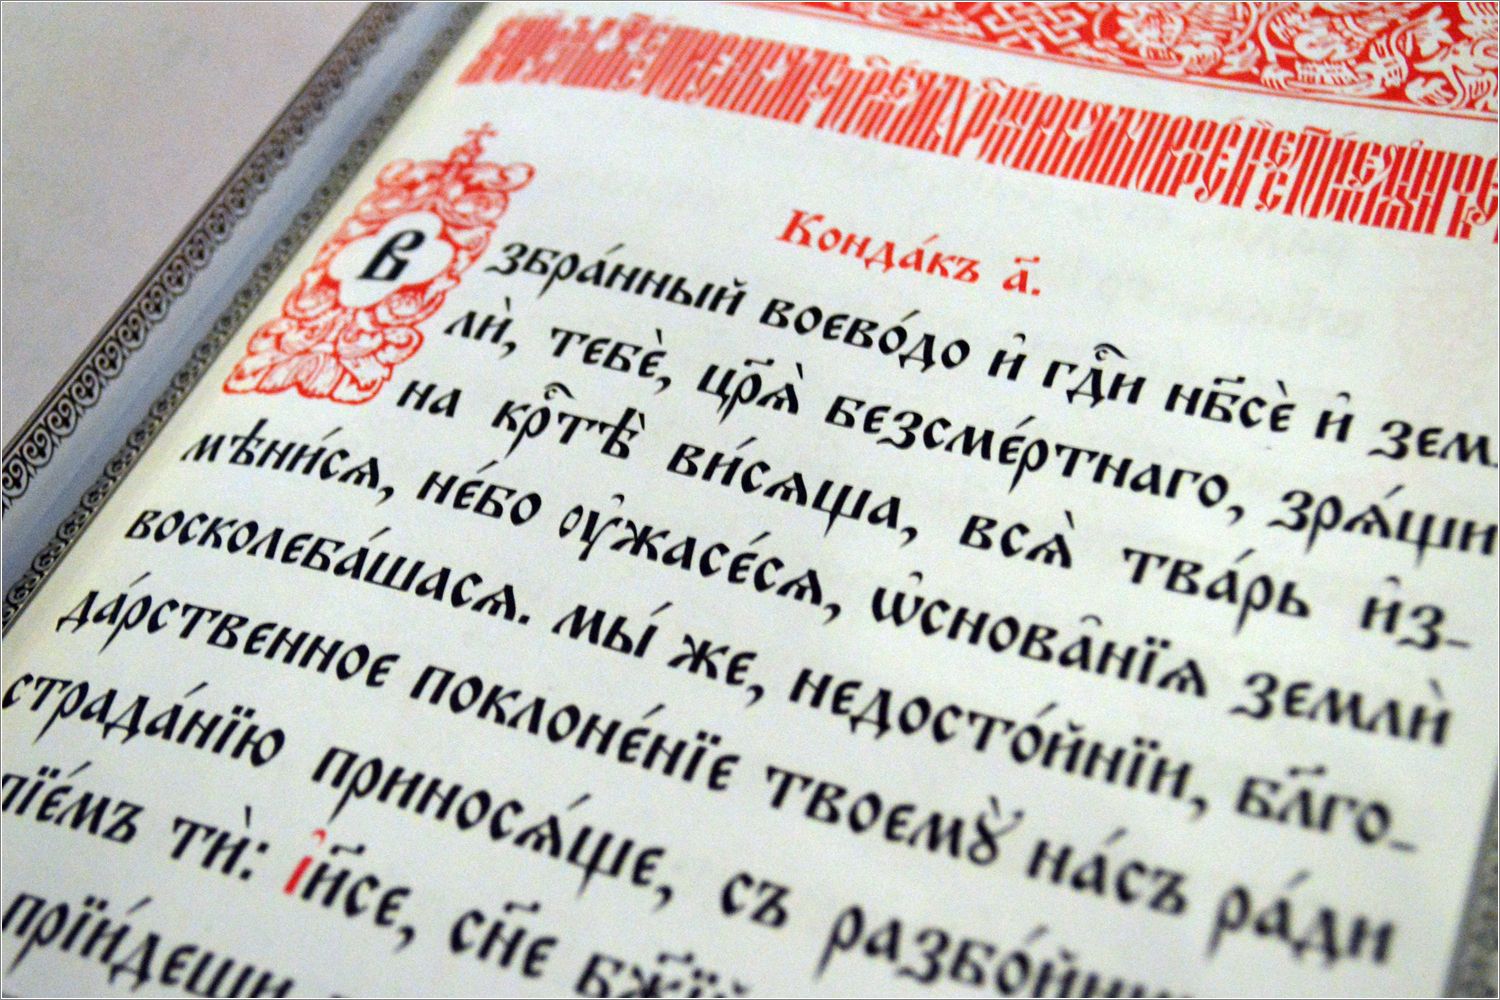 Конда́къ а҃.
Взбра́нный воево́до и҆ гдⷭ҇и нб҃сѐ и҆ зем-
лѝ, тебѐ, цр҃ѧ̀ безсме́ртнаго, зрѧ́щи
на крⷭ҇тѣ̀ ви́сѧща, всѧ̀ тва́рь и҆з-
мѣни́сѧ, не́бо ᲂу҆жасе́сѧ, ѡ҆снова̑нїѧ землѝ
восколеба́шасѧ. мы́ же, недосто́йнїи, бл҃го-
да́рственное поклоне́нїе твоемꙋ̀ на́съ ра́ди
страда́нїю приносѧ́ще, съ разбо́йни
пїе́мъ тѝ: і҆и҃се, сн҃е бж҃їй
прїи́деши